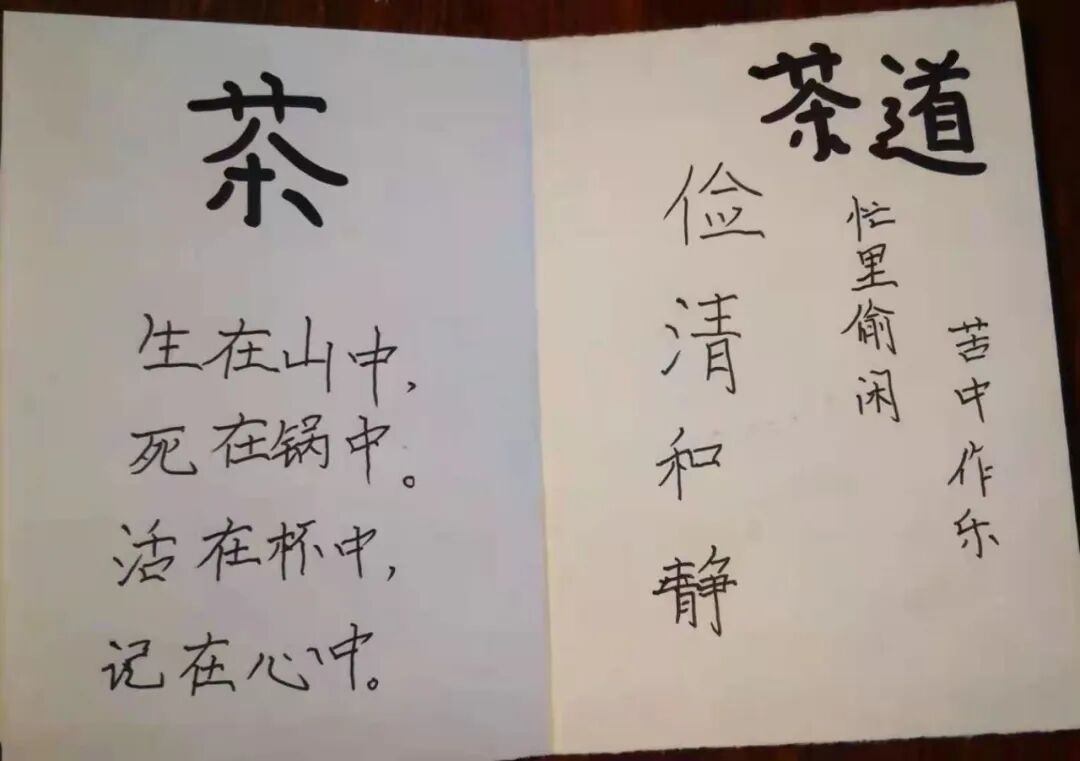 茶
生在山中，
死在锅中。
活在杯中，
记在心中。
茶道
苦中作乐
忙里偷闲
俭清和静